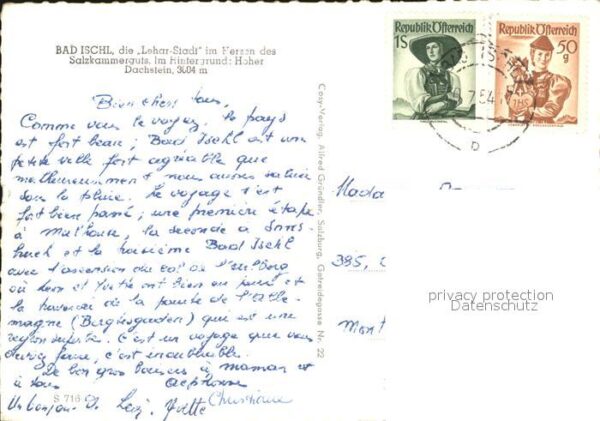 BAD ISCHL, die „Lehar-Stadt" im Herzen des
Salzkammerguts. Im Hintergrund: Hoher
Dachstein, 3004 m
Bien chers tous,
Comme vous le voyez, le pays
est fort beau; Bad Ischl est une
petite ville fort agréable que
malheureusement nous avons
sous la pluie. Le voyage s'est
fort bien passé; une première étape
à Mulhouse, la seconde à Inns-
bruck et la troisième Bad Ischl
avec l'ascension du col de l'Arlberg
où et
la traversée de la pointe de l'Alle-
magne (Berchtesgaden) qui est une
région superbe. C'est un voyage que vous
devriez faire, c'est inoubliable.
De bon gros baisers à maman et
à tous Alphonse
Un bonjour Yvette Christiane
S 716
Cosy-Verlag, Alfred Gründler, Salzburg, Getreidegasse Nr. 22
Republik Österreich
1S
Republik Österreich
50
g
Mada
385,
Mont
privacy protection
Datenschutz